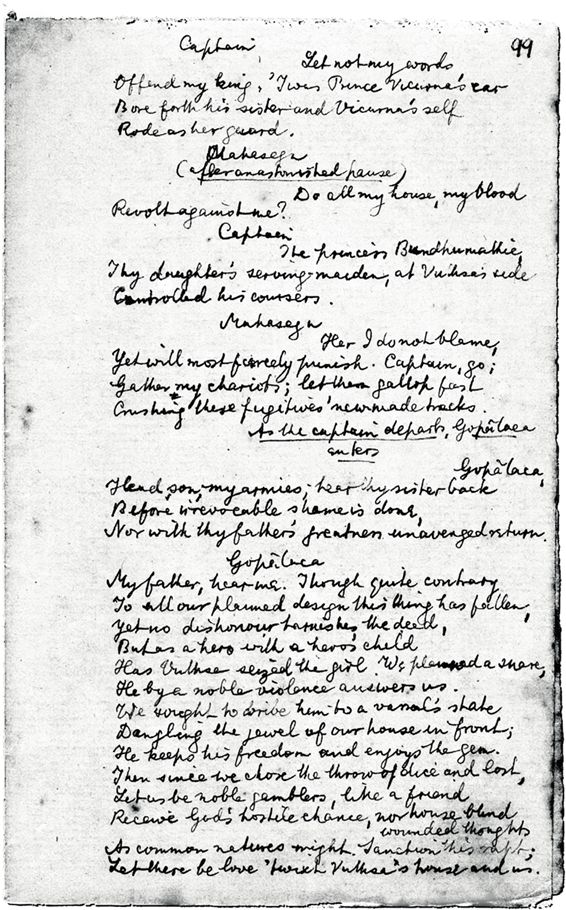 99
Captain
Let not my words
Offend my king. 'Twas Prince Vicurna's car
Bore forth his sister and Vicurna's self
Rode as her guard.
Mahasegn
(after an astonished pause)
Do all my house, my blood
Revolt against me?
Captain
The princess Bundhumathie,
Thy daughter's serving-maiden, at Vuthsa's side
Controlled his coursers.
Mahasegn
Her I do not blame,
Yet will most fiercely punish. Captain, go;
Gather my chariots; let them gallop fast
Crushing these fugitives' new-made tracks.
As the captain departs, Gopālaca
enters
Gopālaca,
Head, son, my armies; bear thy sister back
Before irrevocable shame is done,
Nor with thy father's greatness unavenged return.
Gopālaca
My father, hear me. Though quite contrary
To all our planned design this thing has fallen,
Yet no dishonour tarnishes the deed,
But as a hero with a hero's child
Has Vuthsa seized the girl. We planned a snare,
He by a noble violence answers us.
We sought to bribe him to a vassal's state
Dangling the jewel of our house in front;
He keeps his freedom and enjoys the gem.
Then since we chose the throw of dice and lost,
Let us be noble gamblers, like a friend
Receive God's hostile chance, nor house blind
wounded thoughts
As common natures might. Sanction this rapt;
Let there be love 'twixt Vuthsa's house and us.